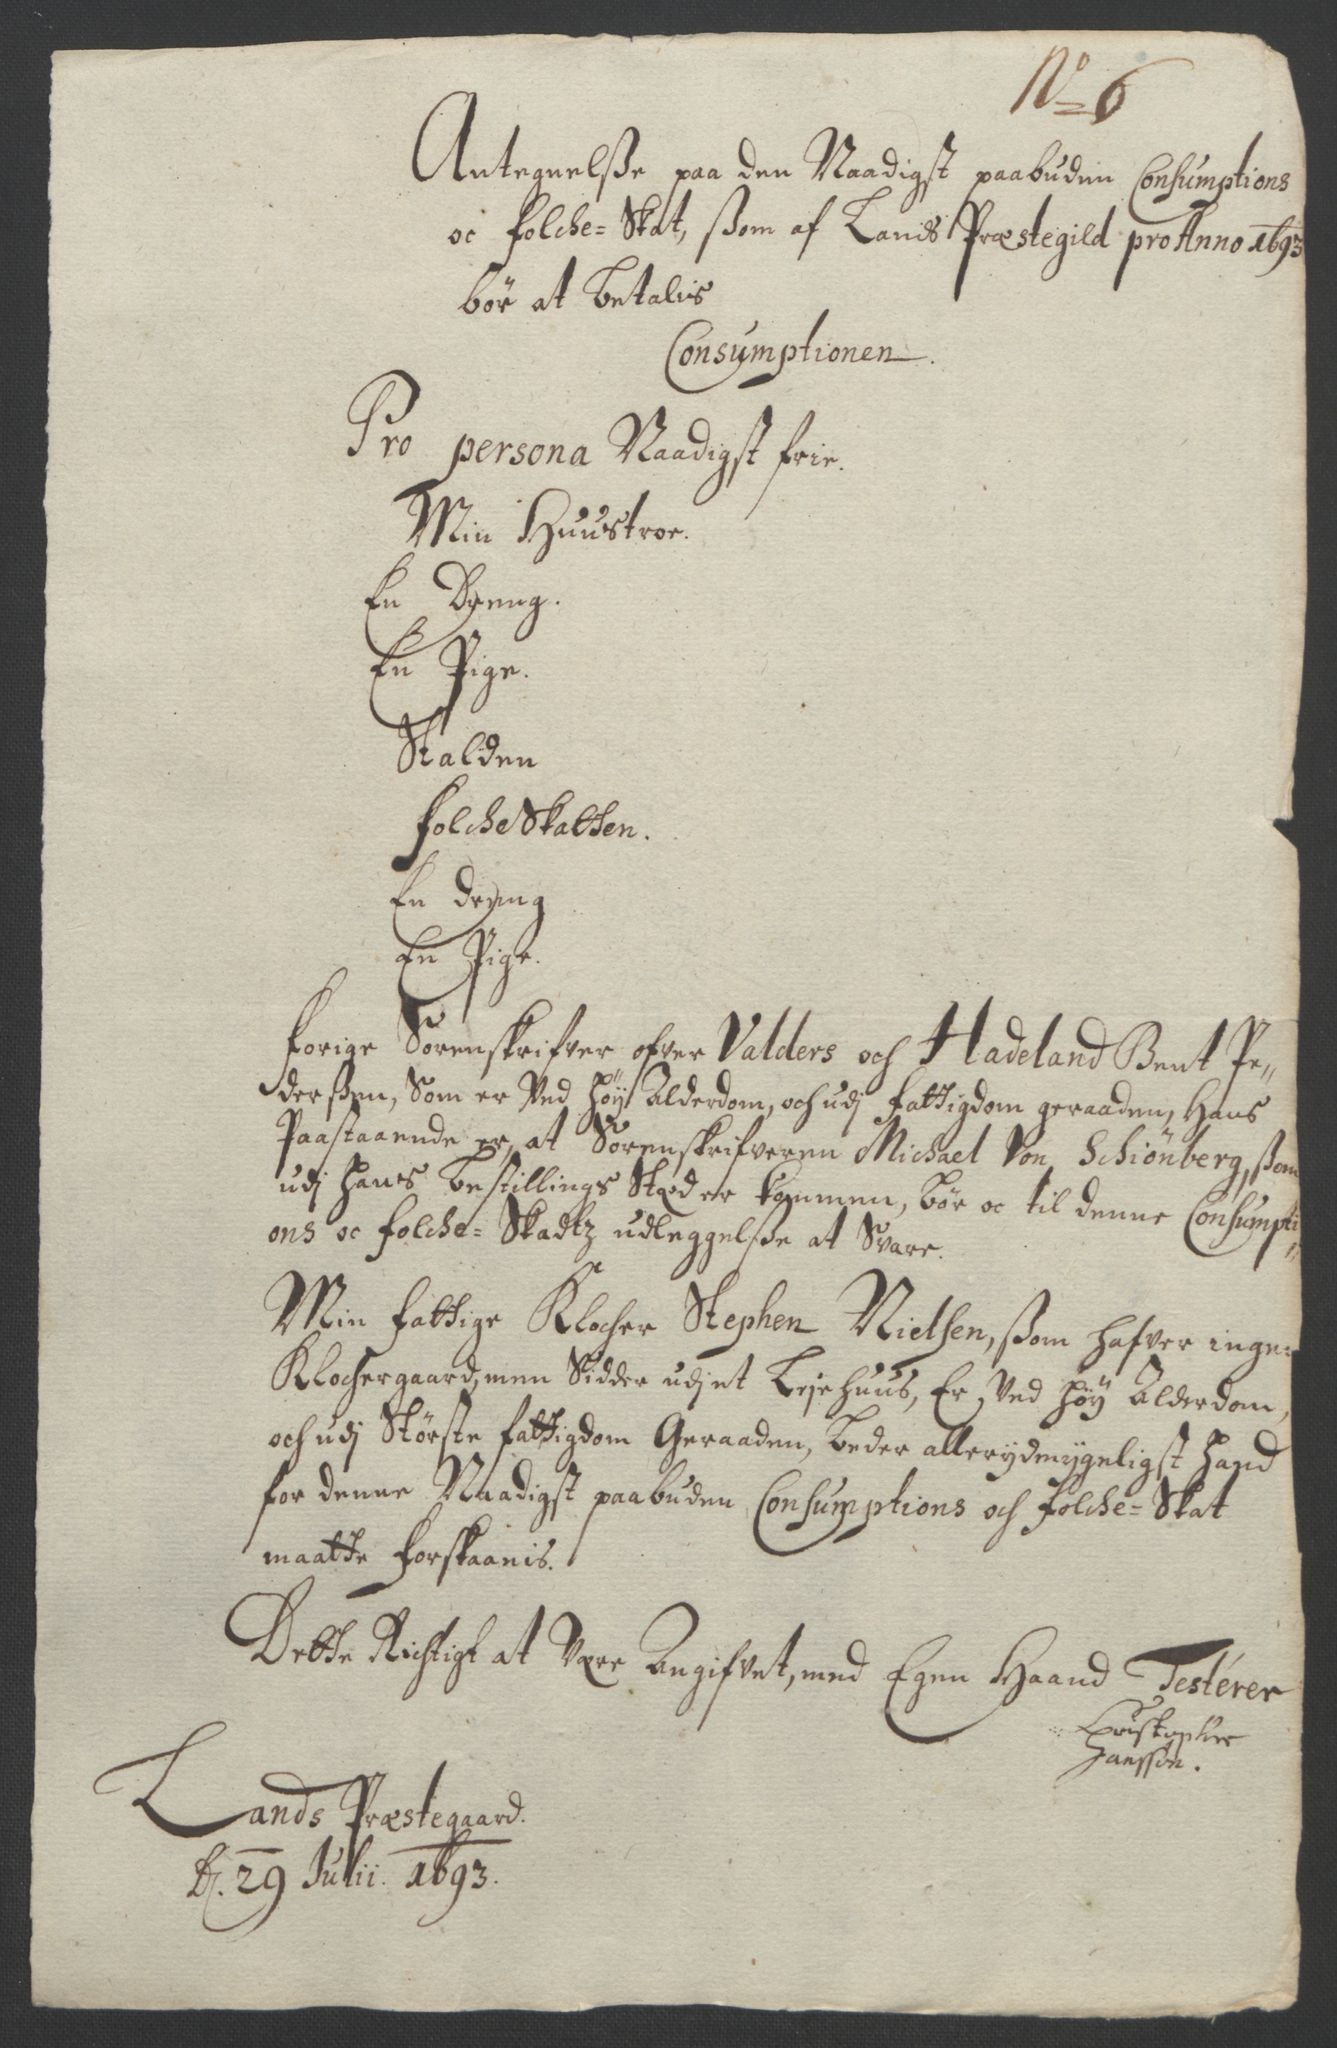 No 6
Antegnelsse paa den Naadigst paabuden Consumptions
oc folche= Skat, ssom af Lands Præstegild pro Anno 1693
bör at betalis
Consumptionen.
Pro persona Naadigst frie.
Min Huustroe.
En Dreng.
En Pige.
Stalden
folcheSkatten.
En dreng
En Pige.
Forige Sorenskrifver ofver Valders och Hadeland Bent Pe„
derssen, Som er Ved höy Alderdom, och udj fattigdom geraaden, Hans
Paastaaende er, at Sorenskrifveren Michael Von Schiönberg, ssom
udj hans bestillings Stæd er kommen, bör oc til denne Consumpti„
ons oc folche= Skadtz udleggelsse at Svare.
Min fattige Klocher Stephen Nielsen, ssom hafver ingen
Klochergaard, men Sidder udj et Lejehuus, Er Ved höy Alderdom,
och udj Störste fattigdom Geraaden, beder allerydmygeligst hand
for denne Naadigst paabuden Consumptions och folche= Skat
maatte forskaanis.
Dette Richtigt at Være Angifvet, med Egen Haand Testerer
Christopher
Hanssön.
Lands Præstegaard.
d. 29 Julii. 1693.